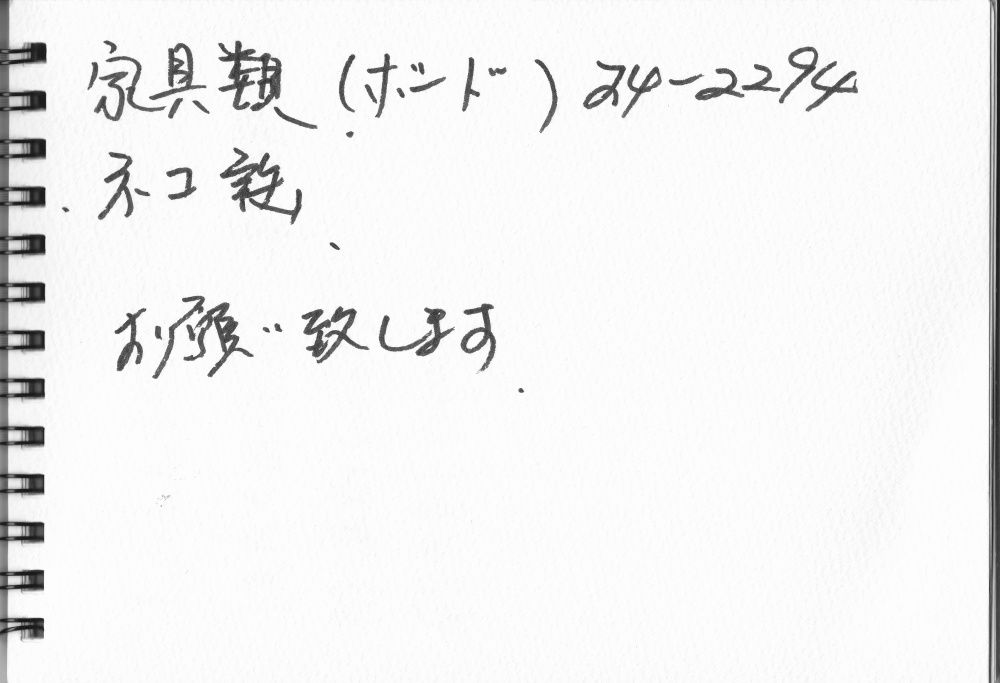 家具類(ボンド)24-2294
ネコ
お願い致します